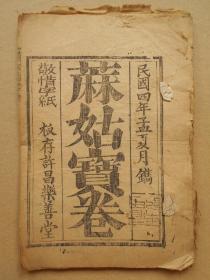 民國四年孟夏月鐫
蔴姑寳卷
敬惜字紙
板存許昌樂善堂